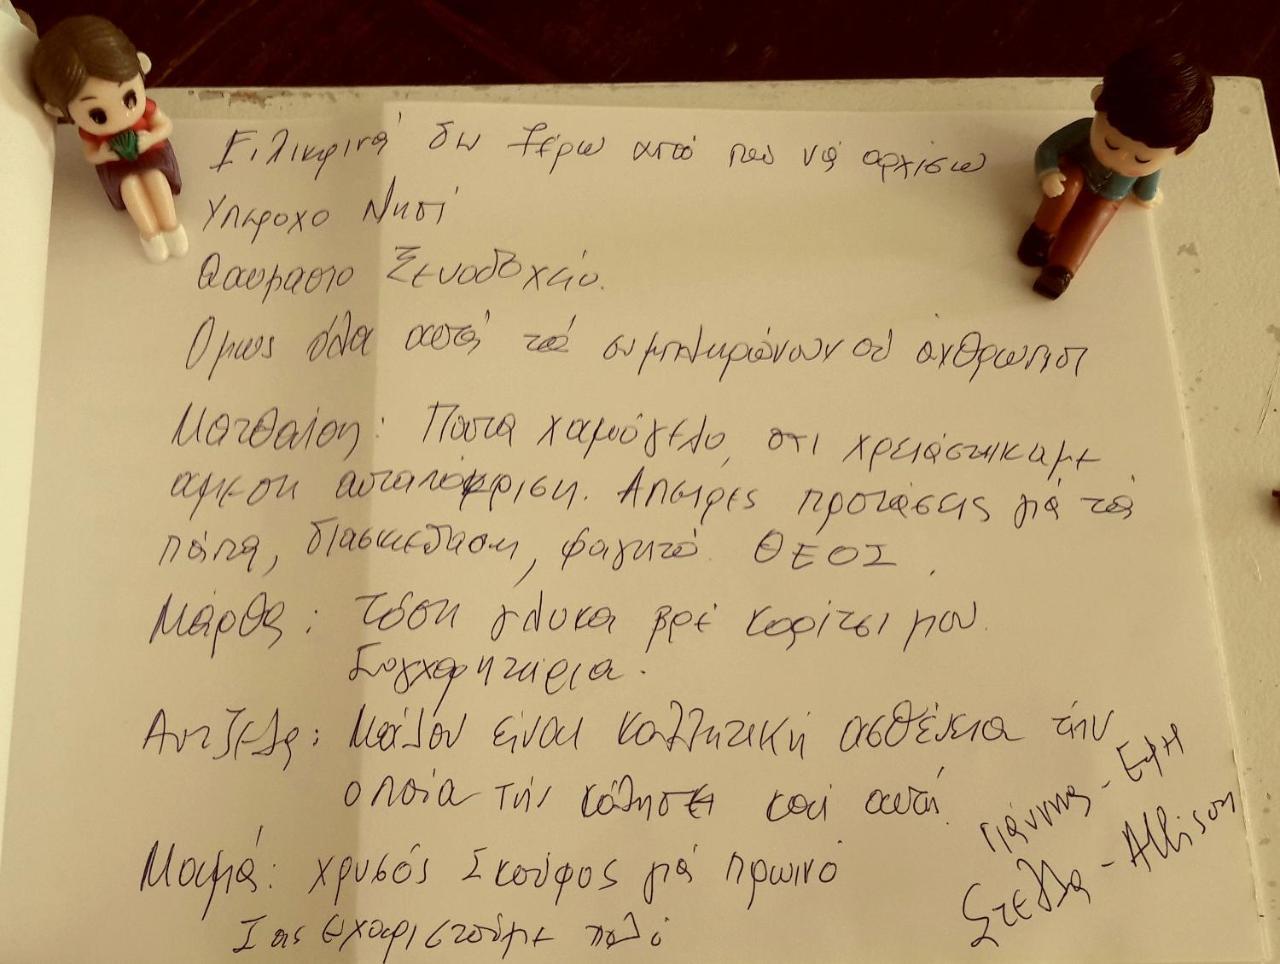 Ειλικρινά δεν ξέρω από που να αρχίσω
Υπεροχο Νησί
Θαυμαστο Ξενοδοχείο.
Ομως όλα αυτά τα συμπληρώνουν οι ανθρωποι
Ματθαίος: Παντα χαμόγελο, οτι χρειάστηκαμε
αμεση ανταπόκριση. Απειρες προτάσεις γιά τα
πάντα, διασκεδαση, φαγητό. ΘΕΟΣ.
Μάρθα: τόση γλυκα βρέ κορίτσι μου.
Συγχαρητηρια.
Αντζελα: Μάλον είναι κολλητική ασθένεια την
οποία την κόλησε και αυτή.
Μαμά: χρυσός Σκούφος γιά πρωινό
Σας εχαριστούμε πολύ
Γιάννης - Εφη
Στελλα - Allison